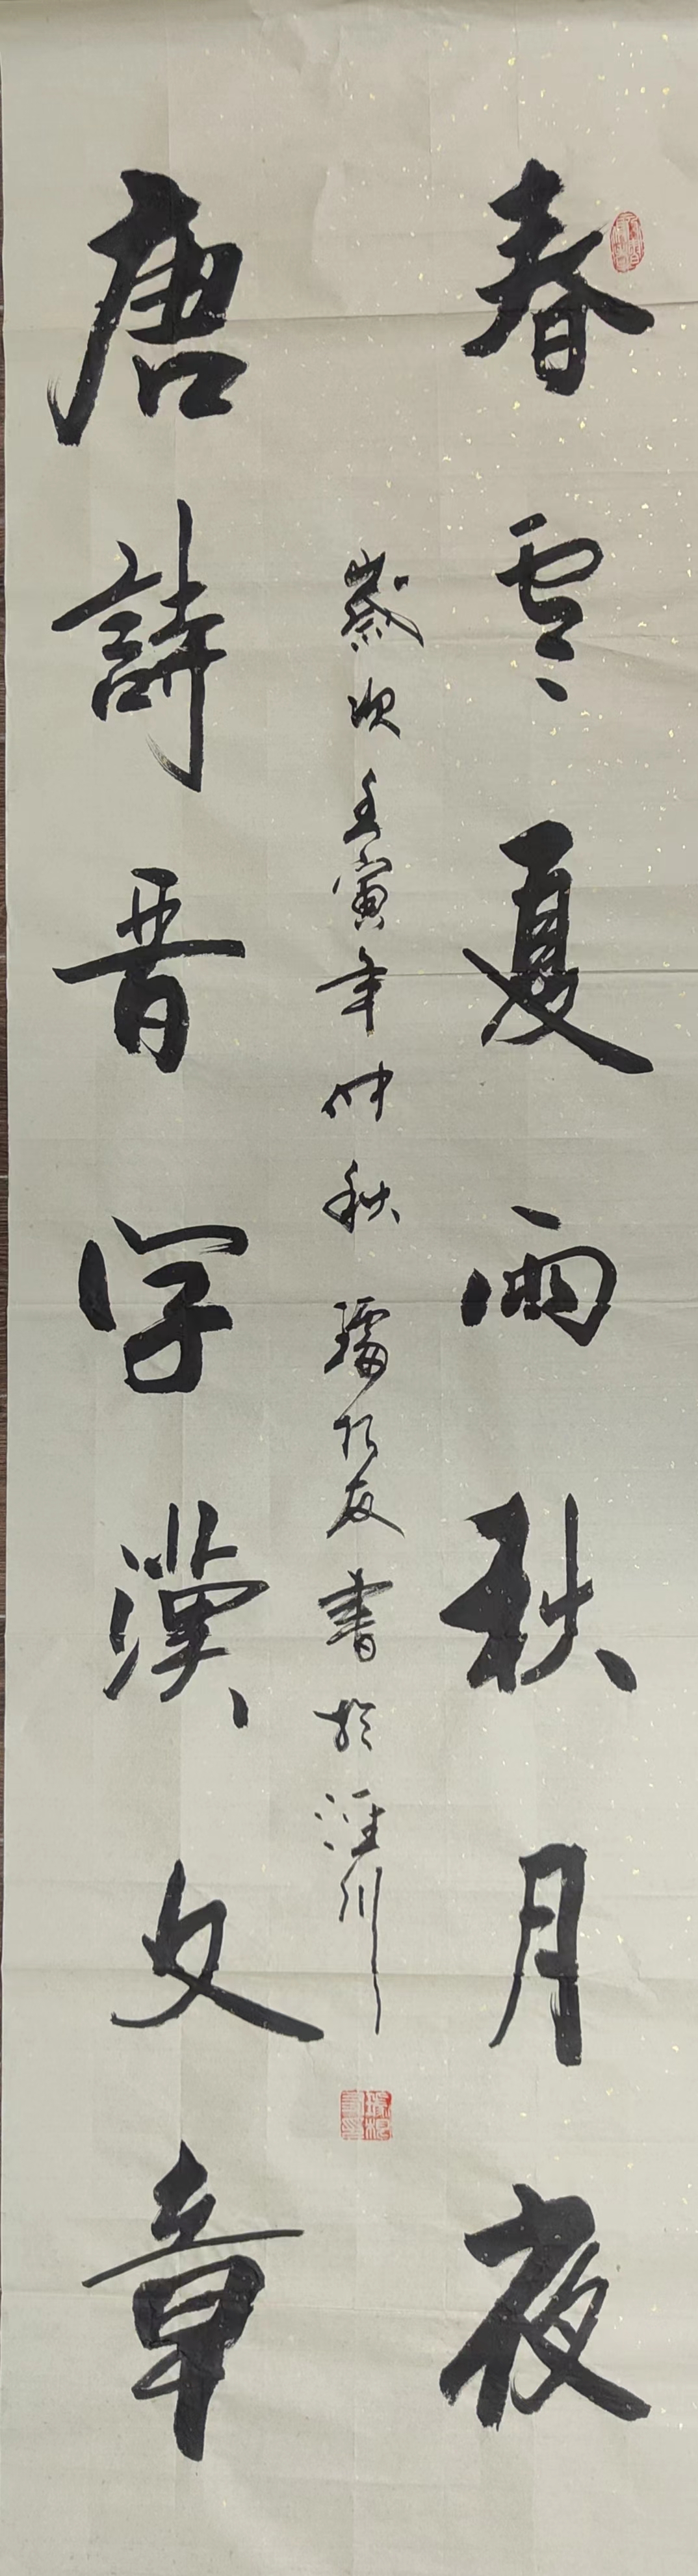 春雲夏雨秋月夜
唐詩晉字漢文章
歲次壬寅年仲秋 友書於涇川